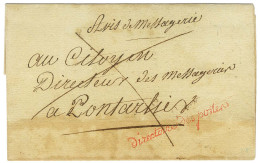 Avis de Messagerie
au Citoyen
Directeur des Messageries
a Pontarlier
Directeur Des postes